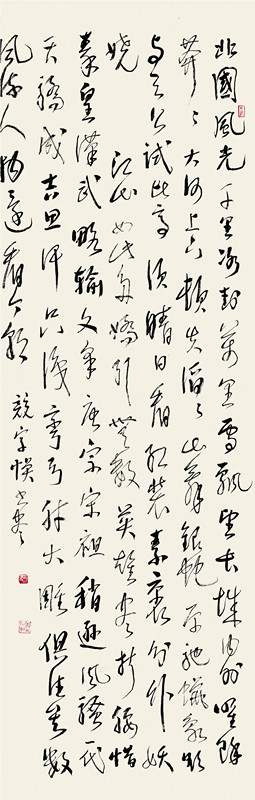 北國風光千里冰封萬里雪飄望長城內外唯餘
莽〻大河上下頓失滔〻山舞銀蛇原馳蠟象欲
與天公試比高須晴日看紅裝素裹分外妖
嬈江山如此多嬌引無數英雄尽折腰惜
秦皇漢武略輸文采唐宗宋祖稍遜風騷一代
天驕成吉思汗只識彎弓射大雕俱往矣數
風流人物還看今朝競字悮書尽